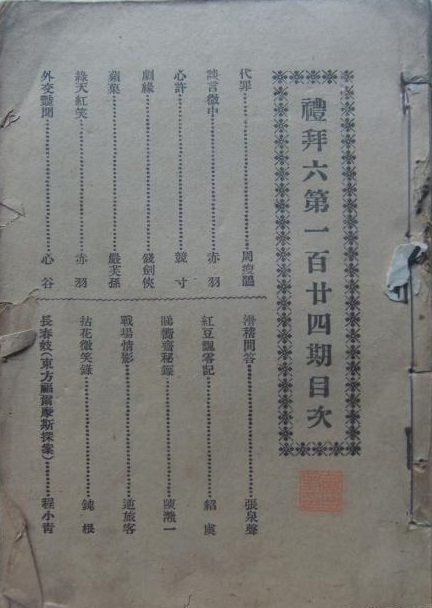 禮拜六第一百廿四期目次
代罪……周瘦鵑
談言微中……赤羽
心許……競寸
劇緣……錢劍俠
蘋菓……嚴芙孫
綠天紅笑……赤羽
外交豔聞……心谷
滑稽問答……張泉聲
紅豆飄零記……紹虞
睇嚮齋秘錄……陳灨一
戰場情影……逆旅客
拈花微笑錄……鈍根
長春妓(東方福爾摩斯探案)……程小青